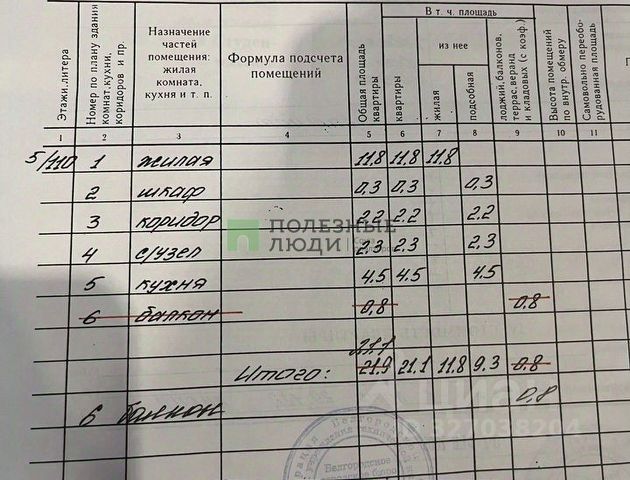 В т. ч. площадь
из нее
Этажи, литера
Номер по плану здания
комнат, кухни,
коридоров и пр.
Назначение
частей
помещения:
жилая
комната,
кухня и т. п.
Формула подсчета
помещений
Общая площадь
квартиры
квартиры
жилая
подсобная
лоджий, балконов,
террас, веранд
и кладовых (с коэф.)
Высота помещений
по внутр. обмеру
Самовольно переобо-
рудованная площадь
1 2 3 4 5 6 7 8 9 10 11
5/110 1 жилая 11,8 11,8 11,8
2 шкаф 0,3 0,3 0,3
3 коридор 2.2 2.2 2.2
4 с/узел 2.3 2.3 2.3
5 кухня 4.5 4.5 4.5
6 балкон 0,8 0.8
21,1
Итого: 21,9 21.1 11,8 9.3 0.8
0,8
6 балкон
ПОЛЕЗНЫЕ
ЛЮДИ
циан
327038204
Белгородское